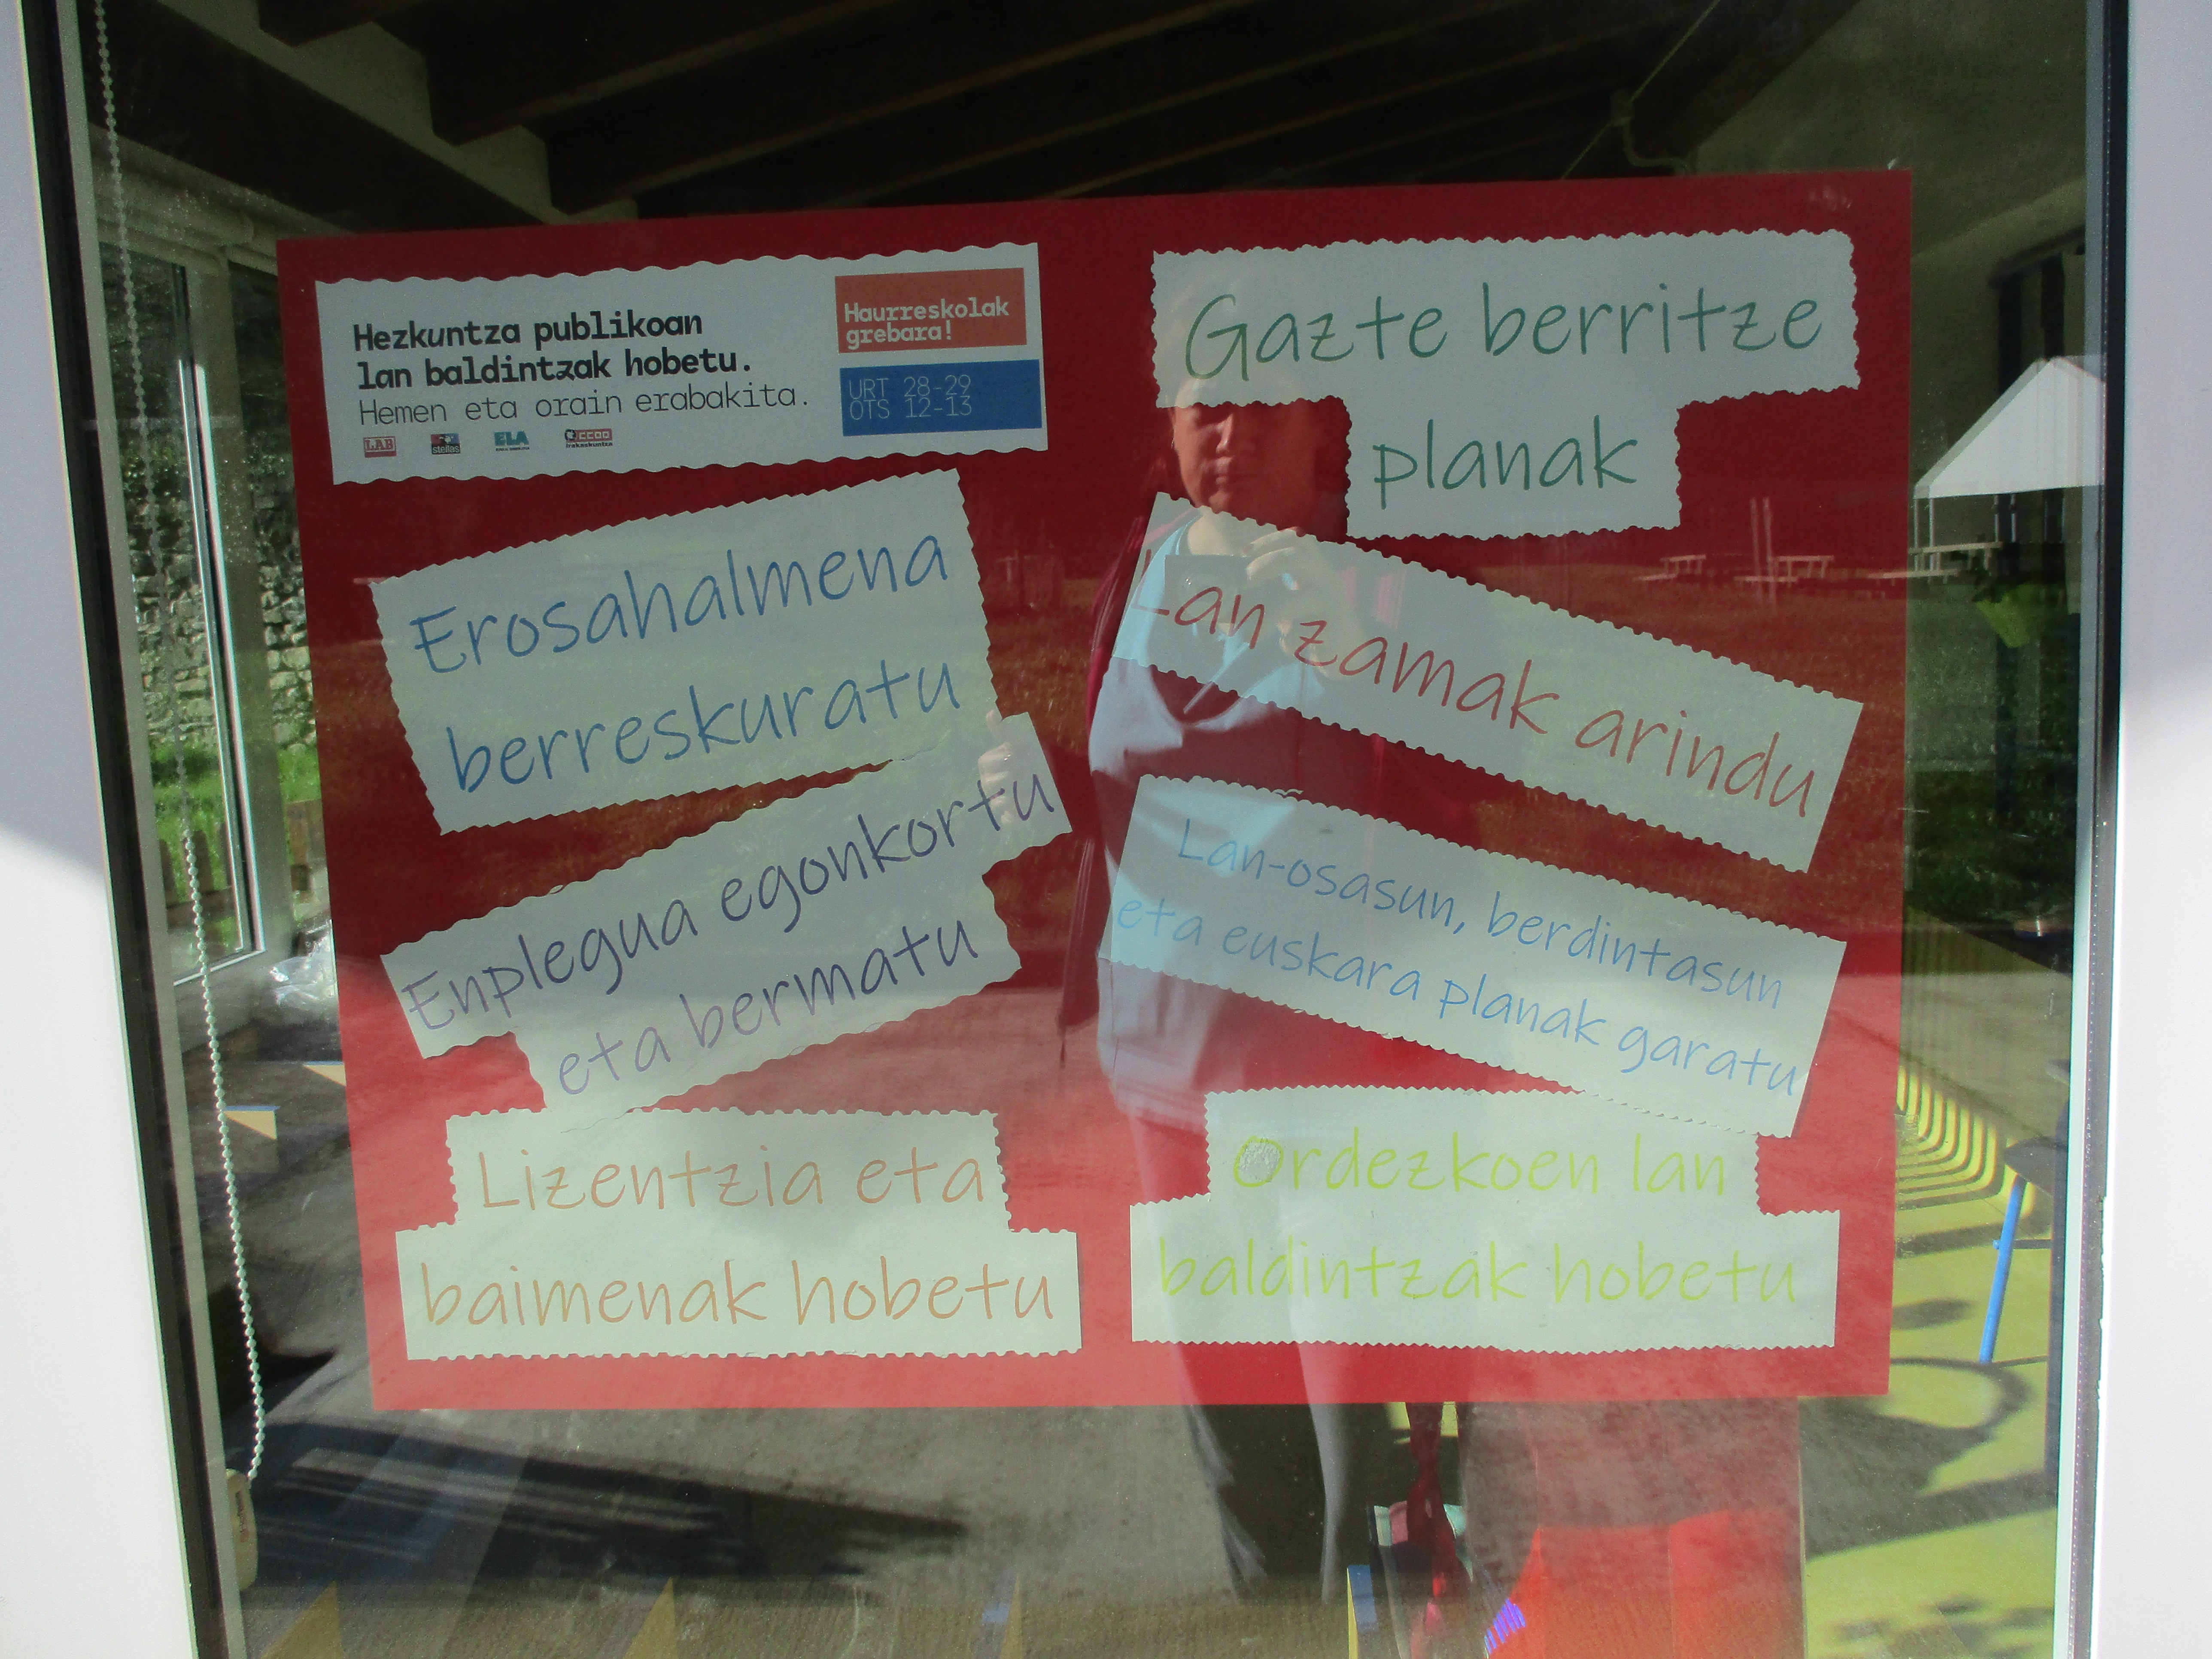 Hezkuntza publikoan
lan baldintzak hobetu.
Hemen eta orain erabakita.
LAB
steilas
ELA
CCOO
irakaskuntza
Haurreskolak
grebara!
URT 28-29
OTS 12-13
Erosahalmena
berreskuratu
Enplegua egonkortu
eta bermatu
Lizentzia eta
baimenak hobetu
Gazte berritze
planak
Lan zamak arindu
Lan-osasun, berdintasun
eta euskara planak garatu
Ordezkoen lan
baldintzak hobetu